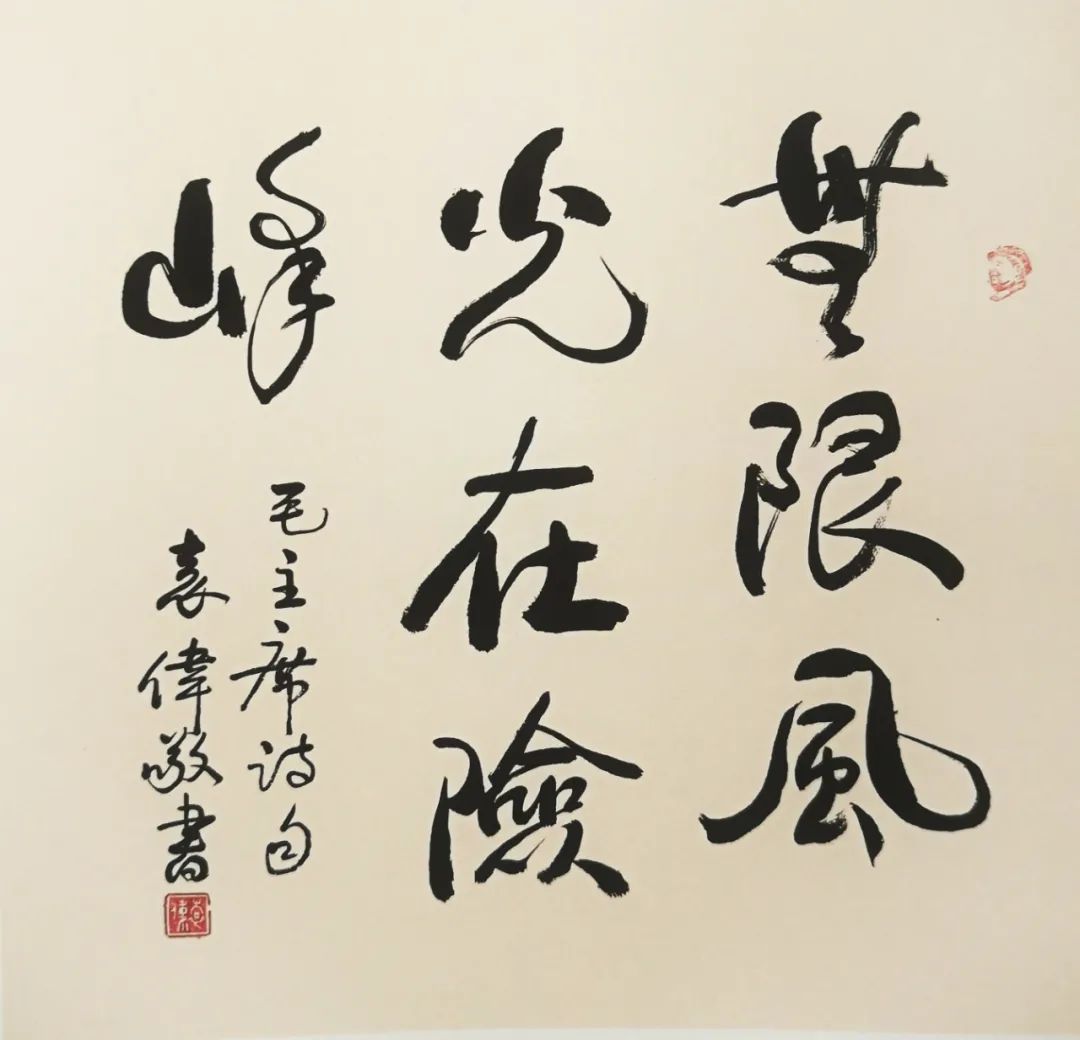 無限風
光在險
峰
毛主席詩句
袁偉敬書